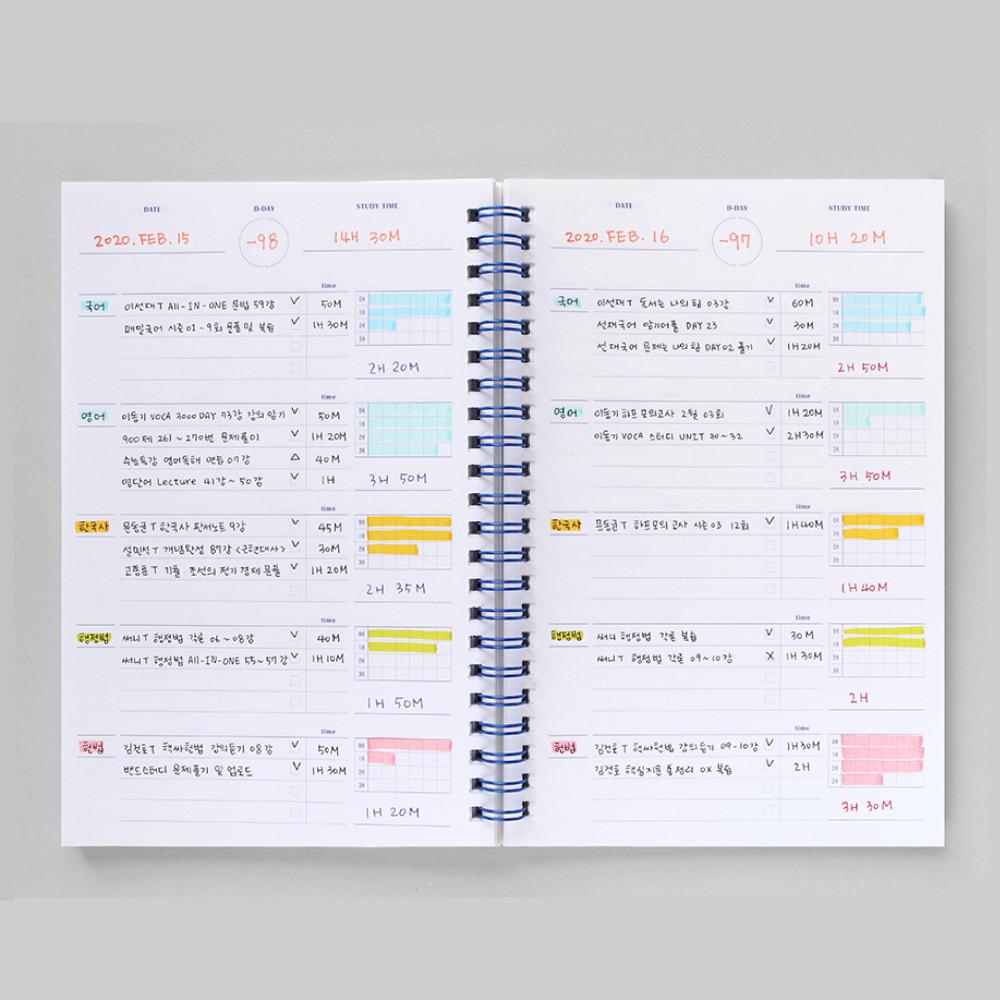 DATE D-DAY STUDY TIME
2020. FEB. 15 -98 14H 30M
time
국어 이선재T All-IN-ONE 문법 59강 V 50M
매일국어 시즌01-9회 문풀 및 복습 V 1H 30M
2H 20M
time
영어 이동기 VOCA 3000 DAY 93강 강의 암기 V 50M
900제 261~270번 문제풀이 V 1H 20M
수능특강 영어독해 연습 07강 △ 40M
영단어 Lecture 41강~50강 V 1H
3H 50M
time
한국사 문동균T 한국사 판서노트 9강 V 45M
설민석T 개념완성 87강 <근현대사> V 30M
고종훈T 기풀 조선의 전기 경제 문풀 V 1H 20M
2H 35M
time
행정법 써니T 행정법 각론 06~08강 V 40M
써니T 행정법 All-IN-ONE 55~57강 V 1H 10M
1H 50M
time
헌법 김건호T 핵싸헌법 강의듣기 08강 V 50M
밴드스터디 문제풀기 및 업로드 V 1H 30M
1H 20M
DATE D-DAY STUDY TIME
2020. FEB. 16 -97 10H 20M
time
국어 이선재T 독서는 나의 힘 03강 V 60M
선재국어 암기어플 DAY 23 V 30M
선재국어 문제는 나의 힘 DAY 02 풀기 V 1H 20M
2H 50M
time
영어 이동기 하프모의고사 2월 03회 V 1H 20M
이동기 VOCA 스터디 UNIT 30~32 V 2H 30M
3H 50M
time
한국사 문동균T 하프모의고사 시즌03 12회 V 1H 40M
1H 40M
time
행정법 써니 행정법 각론 복습 V 30M
써니T 행정법 각론 09~10강 X 1H 30M
2H
time
헌법 김건호T 핵싸헌법 강의듣기 09-10강 V 1H 30M
김건호 핵심지문 총정리 OX 복습 V 2H
3H 30M